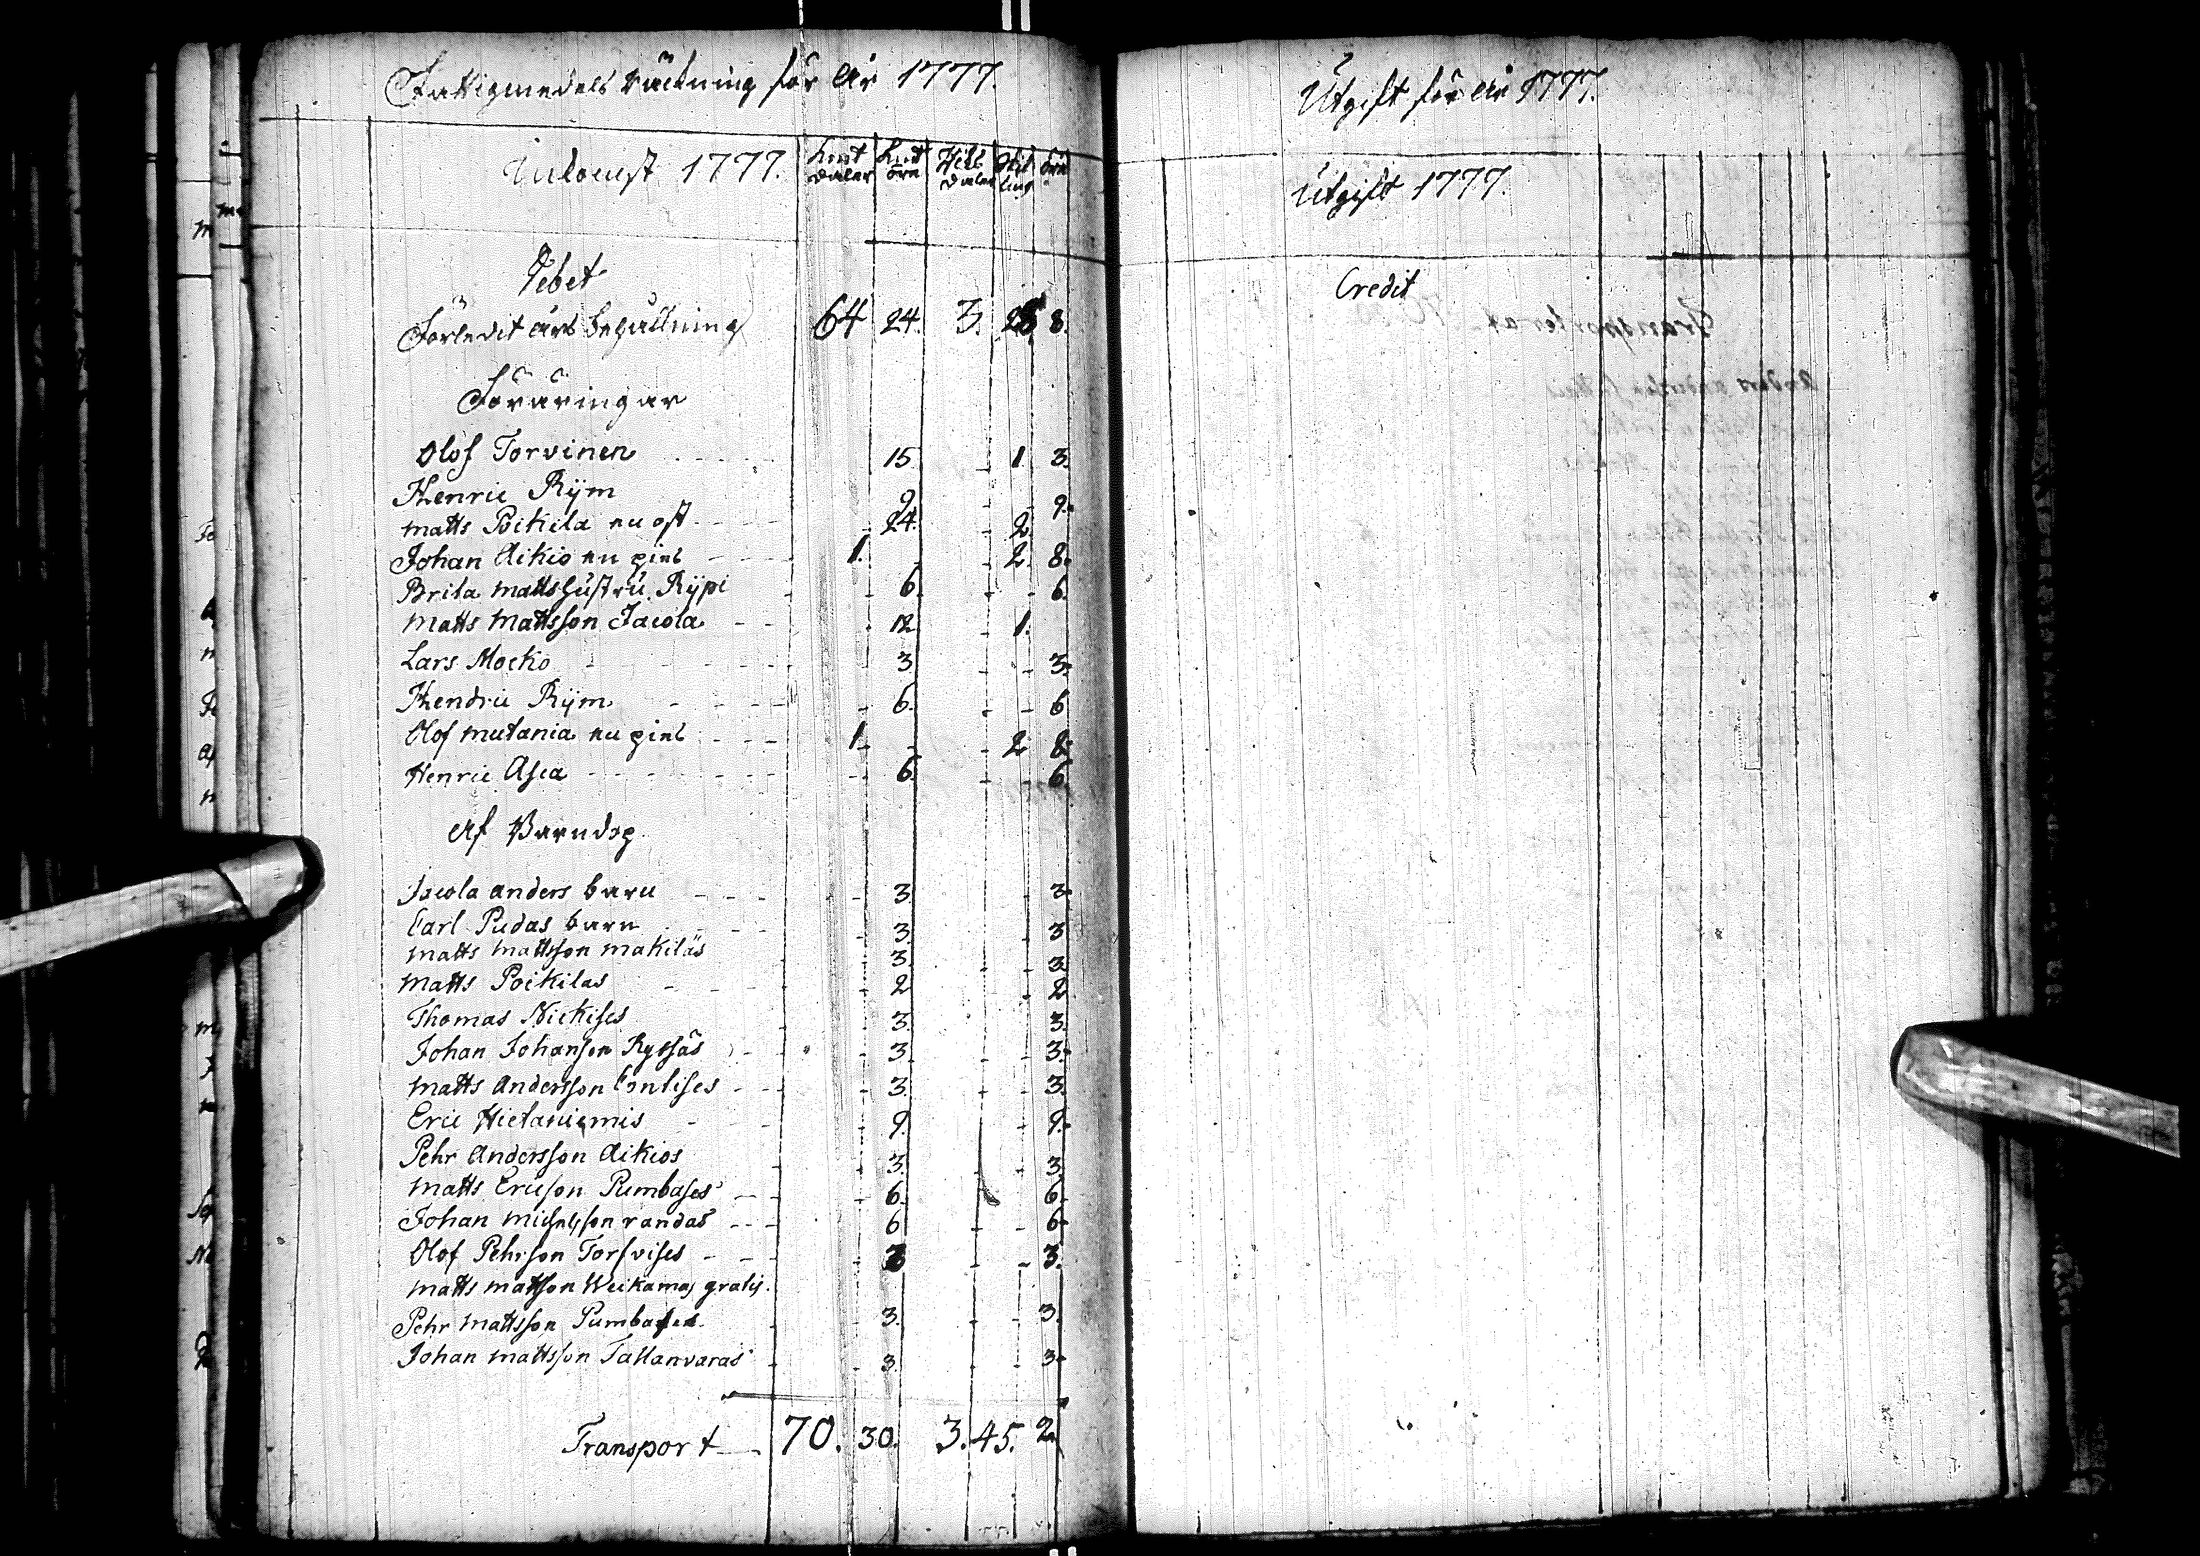 Fattigmedels räckning för År 1777.
Inkomst 1777. Kmt daler Kmt öre Rikb daler Skil ling öre
Debet
Förledit års behållning 64 24. 3. 28 8.
Föräringar
Olof Torvinen 15 1 3.
Henric Rÿm 9 9.
Matts Poikila en ost 24. 2
Johan Aikio en 1. 2. 8.
Brita Matts hustru Rÿpi 6 6.
Matts Mattsson Jacola 12 1.
Lars Mocko 3 3.
Hendric Rÿm 6. 6
Olof Mutania en 1 2 8.
Henric Asca 6. 6
Af Barndop
Jacola Anders barn 3. 3.
Carl Pudas barn 3. 3
Matts Mattsson Makiläs 3. 3
Matts Poikilas 2 2
Thomas Nickises 3. 3.
Johan Johanson 3. 3.
Matts Andersson 3. 3.
Eric Hietaniemis 9. 9.
Pehr Andersson Aikios 3. 3
Matts Ericson Pumbases 6. 6.
Johan Michelsson Randas 6 6
Olof Pehrson Torfvises 3 3.
Matts Mattson Weikamas gratis.
Pehr Mattsson Pumbases 3. 3.
Johan Mattsson Tallanvaras 3. 3.
Transport 70. 30. 3. 45. 2.
Utgift för År 1777.
Utgift 1777.
Credit